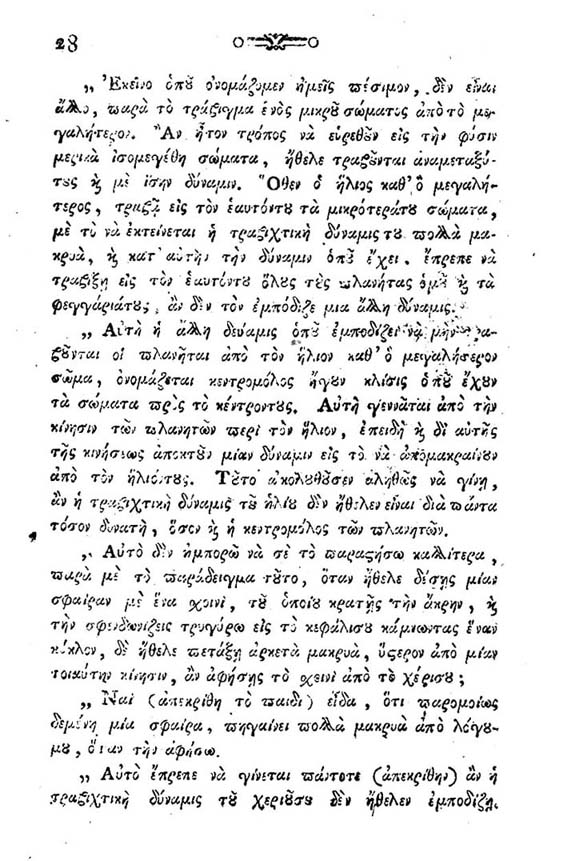 28
„ Ἐκεῖνο ὁποῦ ὀνομάζομεν ἡμεῖς πέσιμον, δὲν εἶναι
ἄλλο, παρὰ τὸ τράβιγμα ἑνὸς μικροῦ σώματος ἀπὸ τὸ με-
γαλήτερον. Ἂν ἦτον τρόπος νὰ εὑρεθοῦν εἰς τὴν φύσιν
μερικὰ ἰσομεγέθη σώματα, ἤθελε τραβοῦνται ἀναμεταξύ-
τους ϗ μὲ ἴσην δύναμιν. Ὅθεν ὁ ἥλιος καθ' ὃ μεγαλή-
τερος, τραβᾷ εἰς τὸν ἑαυτόντου τὰ μικρότεράτου σώματα,
μὲ τὸ νὰ ἐκτείνεται ἡ τραβιχτικὴ δύναμις του πολλὰ μα-
κρυὰ, ϗ κατ' αὐτὴν τὴν δύναμιν ὁποῦ ἔχει, ἔπρεπε νὰ
τραβίξῃ εἰς τὸν ἑαυτόντου ὅλους τοὺς πλανήτας ὁμοῦ ϗ τὰ
φεγγάριάτους, ἂν δὲν τὸν ἐμπόδιζε μια ἄλλη δύναμις.
„ Αὐτὴ ἡ ἄλλη δύναμις ὁποῦ ἐμποδίζει νὰ μὴν
βοῦνται οἱ πλανῆται ἀπὸ τὸν ἥλιον καθ' ὃ μεγαλήτερον
σῶμα, ὀνομάζεται κεντρομόλος ἤγουν κλίσις ὁποῦ ἔχουν
τὰ σώματα πρὸς τὸ κέντροντους. Αὐτὴ γεννᾶται ἀπὸ τὴν
κίνησιν τῶν πλανητῶν περὶ τὸν ἥλιον, ἐπειδὴ ϗ δι αὐτῆς
τῆς κινήσεως ἀποκτοῦν μίαν δύναμιν εἰς τὸ νὰ ἀπομακραίνουν
ἀπὸ τὸν ἥλιόντους. Τοῦτο ἀκολουθοῦσεν ἀληθῶς νὰ γίνῃ,
ἂν ἡ τραβιχτικὴ δύναμις τοῦ ἡλίου δὲν ἤθελεν εἶναι διὰ πάντα
τόσον δυνατὴ, ὅσον ϗ ἡ κεντρομόλος τῶν πλανητῶν.
„ Αὐτὸ δὲν ἠμπορῶ νὰ σὲ τὸ παραστήσω καλλίτερα,
παρὰ μὲ τὸ παράδειγμα τοῦτο, ὅταν ἤθελε δέσῃς μίαν
σφαίραν μὲ ἕνα σχοινὶ, τοῦ ὁποίου κρατῇς τὴν ἄκρην, ϗ
τὴν σφενδωνίζεις τριγύρω εἰς τὸ κεφάλισου κάμνωντας ἕναν
κύκλον, δὲ ἤθελε πετάξῃ ἀρκετὰ μακρυὰ, ὕστερον ἀπὸ μίαν
τοιαύτην κίνησιν, ἂν ἀφήσῃς τὸ σχεινὶ ἀπὸ τὸ χέρισου;
„ Ναὶ (ἀπεκρίθη τὸ παιδὶ) εἶδα, ὅτι παρομοίως
δεμένη μία σφαίρα, πηγαίνει πολλὰ μακρυὰ ἀπὸ λόγου-
μου, ὅταν τὴν ἀφήσω.
„ Αὐτὸ ἔπρεπε νὰ γίνεται πάντοτε (ἀπεκρίθην) ἂν ἡ
τραβιχτικὴ δύναμις τοῦ χεριοῦσου δὲν ἤθελεν ἐμποδίζῃ.